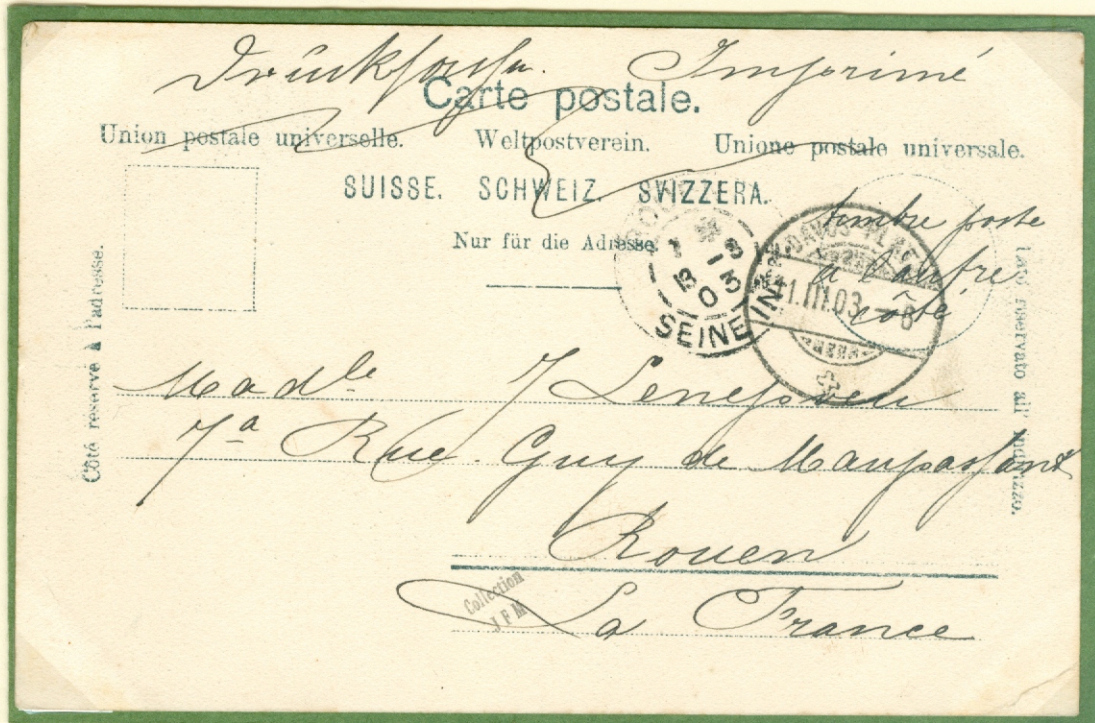 Drucksache. Imprimé
Carte postale.
Union postale universelle. Weltpostverein. Unione postale universale.
SUISSE. SCHWEIZ. SVIZZERA.
Nur für die Adresse.
Côté réservé à l'adresse.
Lato riservato all' indirizzo.
timbre poste
à l'autre
côté
ROUEN
13
03
SEINE INF
DAVOS-PLATZ
11.III.03.-8
Madle J
7a Rue Guy de Maupassant
Rouen
La France
Collection
J F M